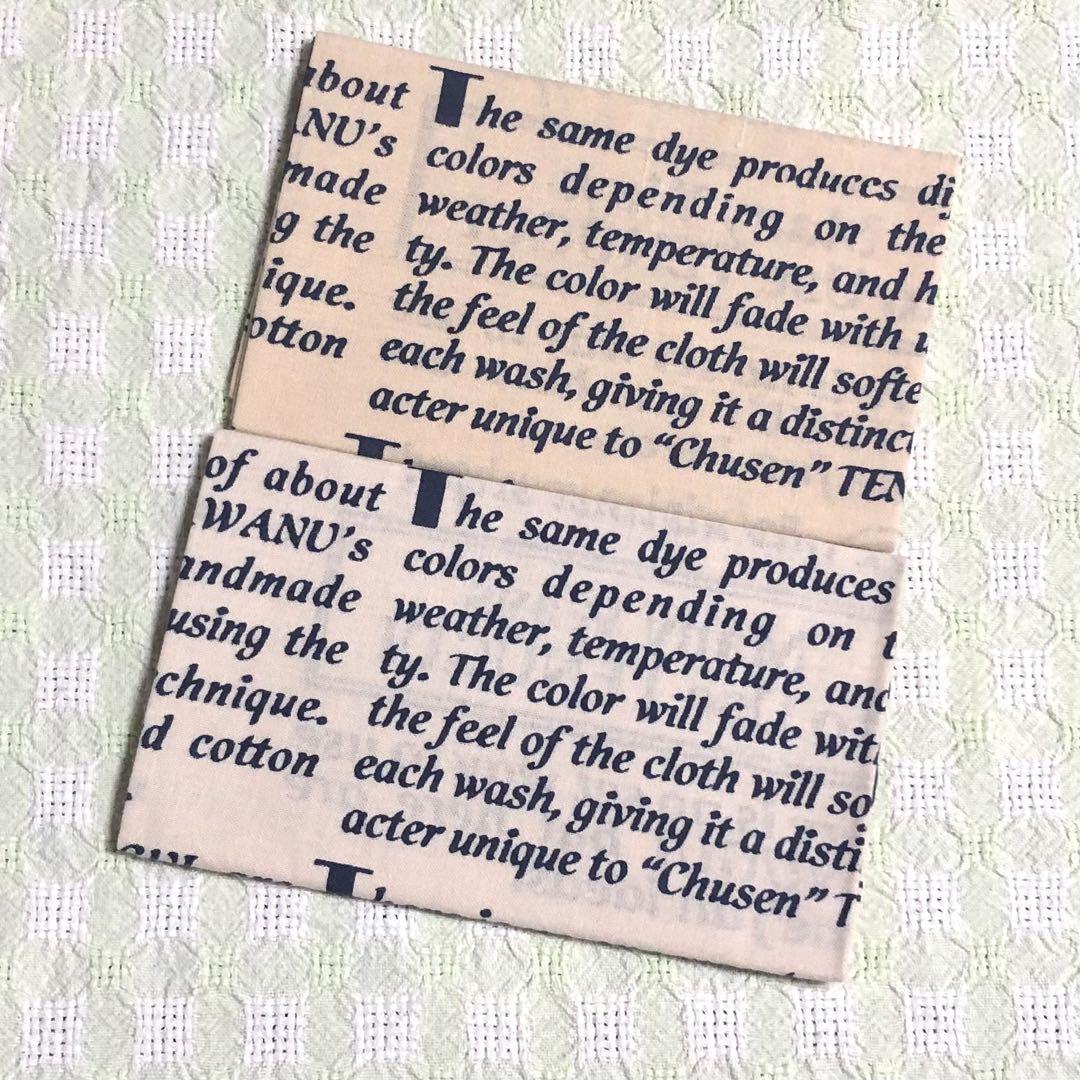 about
NU's
made
g the
ique.
otton
The same dye produces di
colors depending on the
weather, temperature, and h
ty. The color will fade with u
the feel of the cloth will softe
each wash, giving it a distinct
acter unique to “Chusen” TEN
of about
WANU's
andmade
using the
chnique.
d cotton
The same dye produces
colors depending on t
weather, temperature, and
ty. The color will fade wit
the feel of the cloth will so
each wash, giving it a disti
acter unique to “Chusen” T